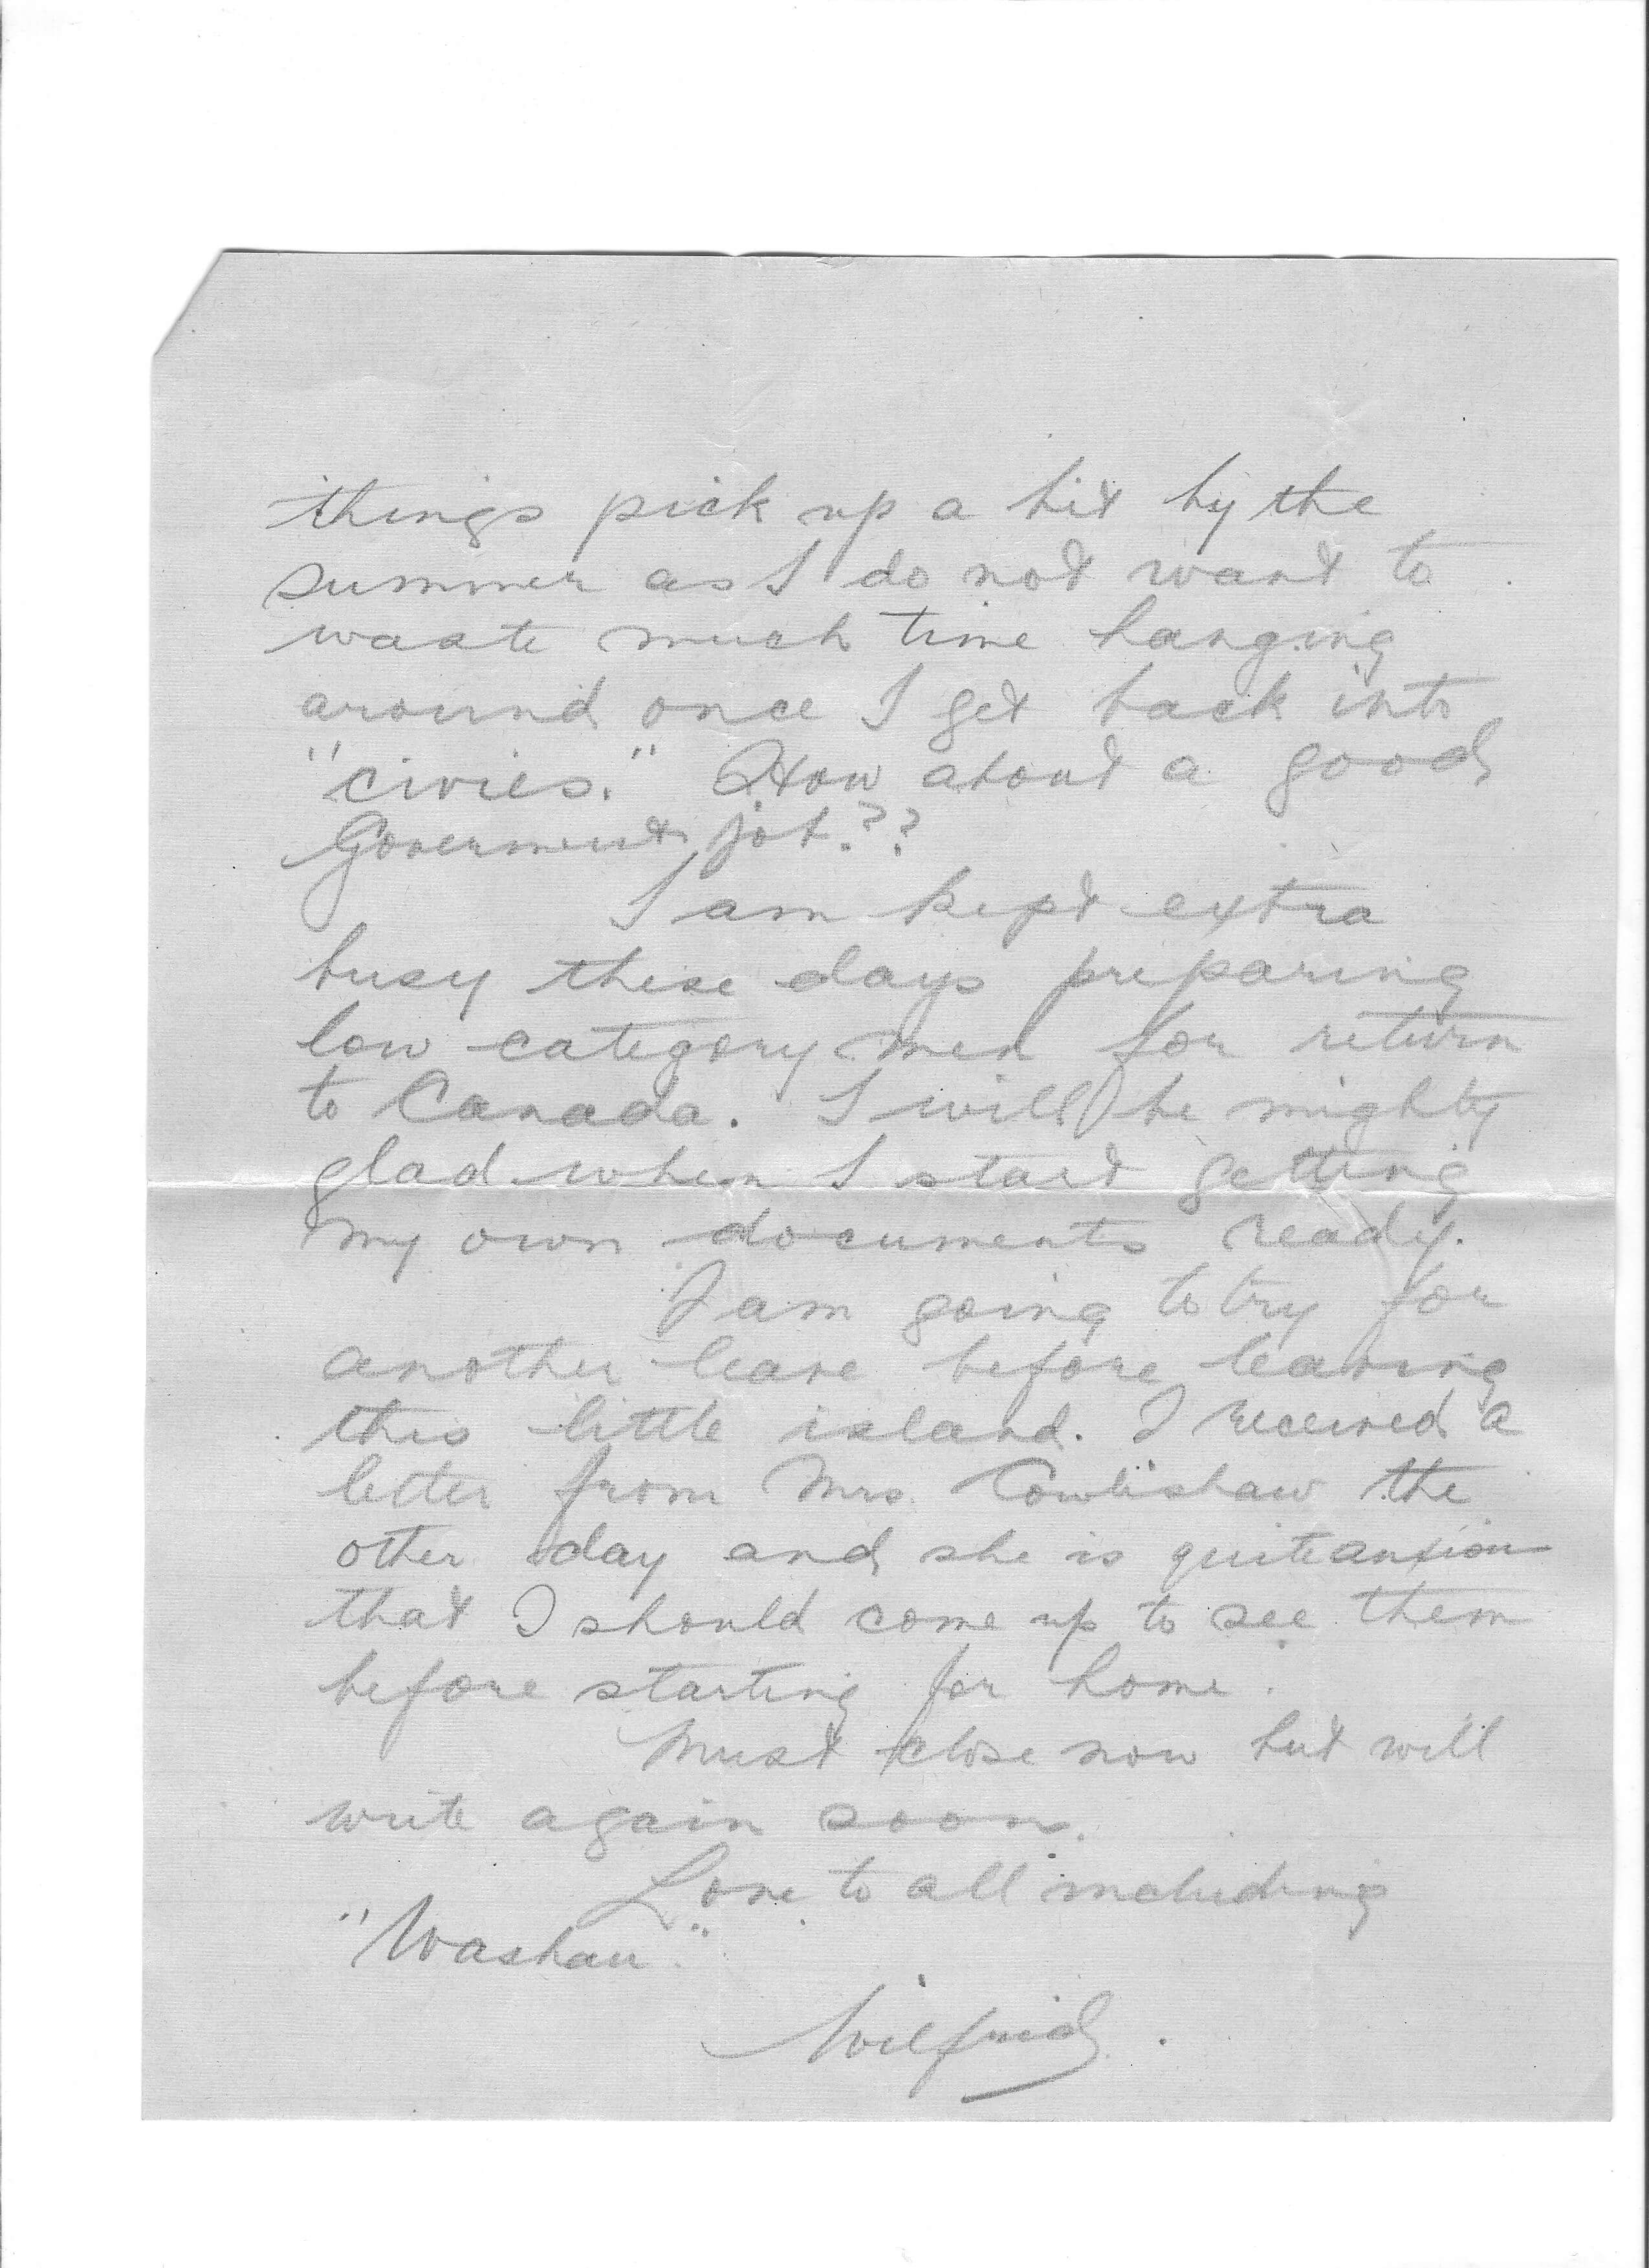 things pick up a bit by the
summer as I do not want to
waste much time hanging
around once I get back into
"civies." How about a good
Government job??
I am kept extra
busy these days preparing
low category men for return
to Canada. I will be mighty
glad when I start getting
my own documents ready.
I am going to try for
another leave before leaving
this little island. I received a
letter from Mrs. Cowlishaw the
other day and she is quite anxious
that I should come up to see them
before starting for home.
Must close now but will
write again soon.
Love to all including
Wilfrid.